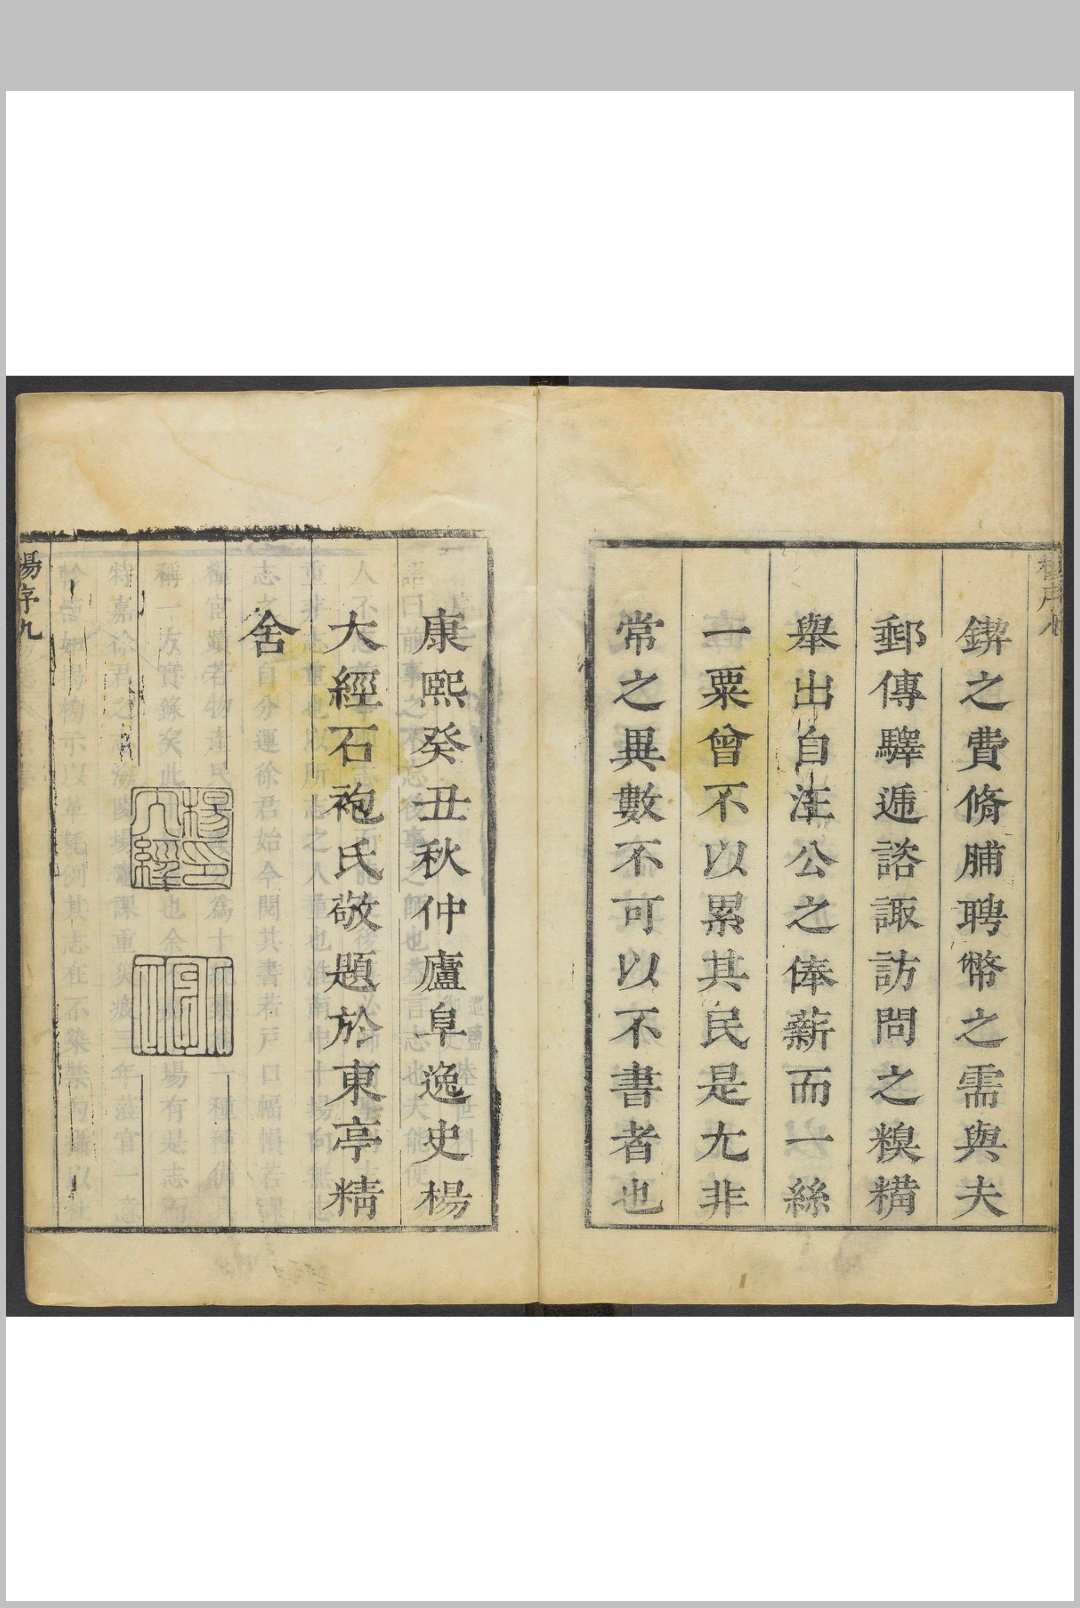 鍥之費脩脯聘幣之需與夫
郵傳驛遞諮諏訪問之糗糒
舉出自汪公之俸薪而一絲
一粟曾不以累其民是尢非
常之異數不可以不書者也
康熙癸丑秋仲廬阜逸史楊
大經石袍氏敬題於東亭精
舍
楊印大經
楊序九